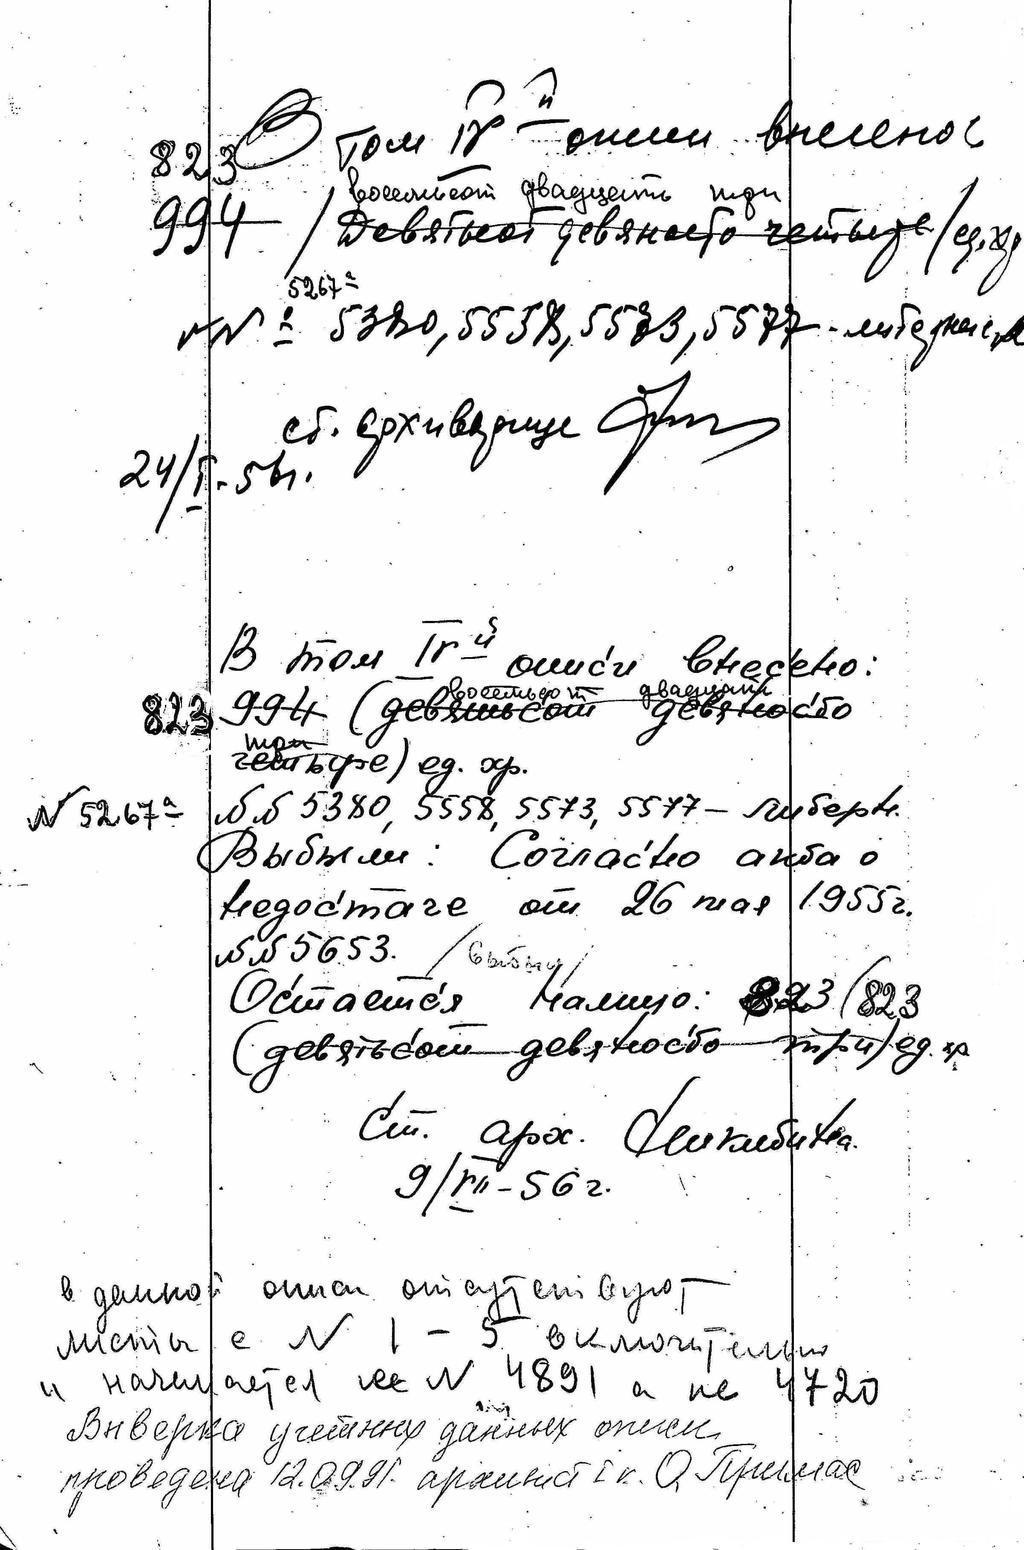 В том IV й описи внесено
823
восемьсот двадцать три
994 /Девятьсот девяносто четыре/ ед.хр
5267а
NN 5380, 5558, 5573, 5577 - литерные
ст. архивариус
24/I-56г.
В том IV й описи внесено:
восемьсот двадцать
823 994 (девятьсот девяносто
три
четыре) ед. хр.
N 5267а NN 5380, 5558, 5573, 5577 – литерн.
Выбыли: Согласно акта о
недостаче от 26 мая 1955г.
NN 5653. /выбыл/
Остается налицо: 823 (823
(девятьсот девяносто три) ед. хр
Ст. арх.
9/VII-56г.
в данной описи отсутствуют
листы с N 1 – 5 включительно
и начинается с N 4891 а не 4720
Выверка учетных данных описи
проведена 12.09.91. архивист I к. О. Примас